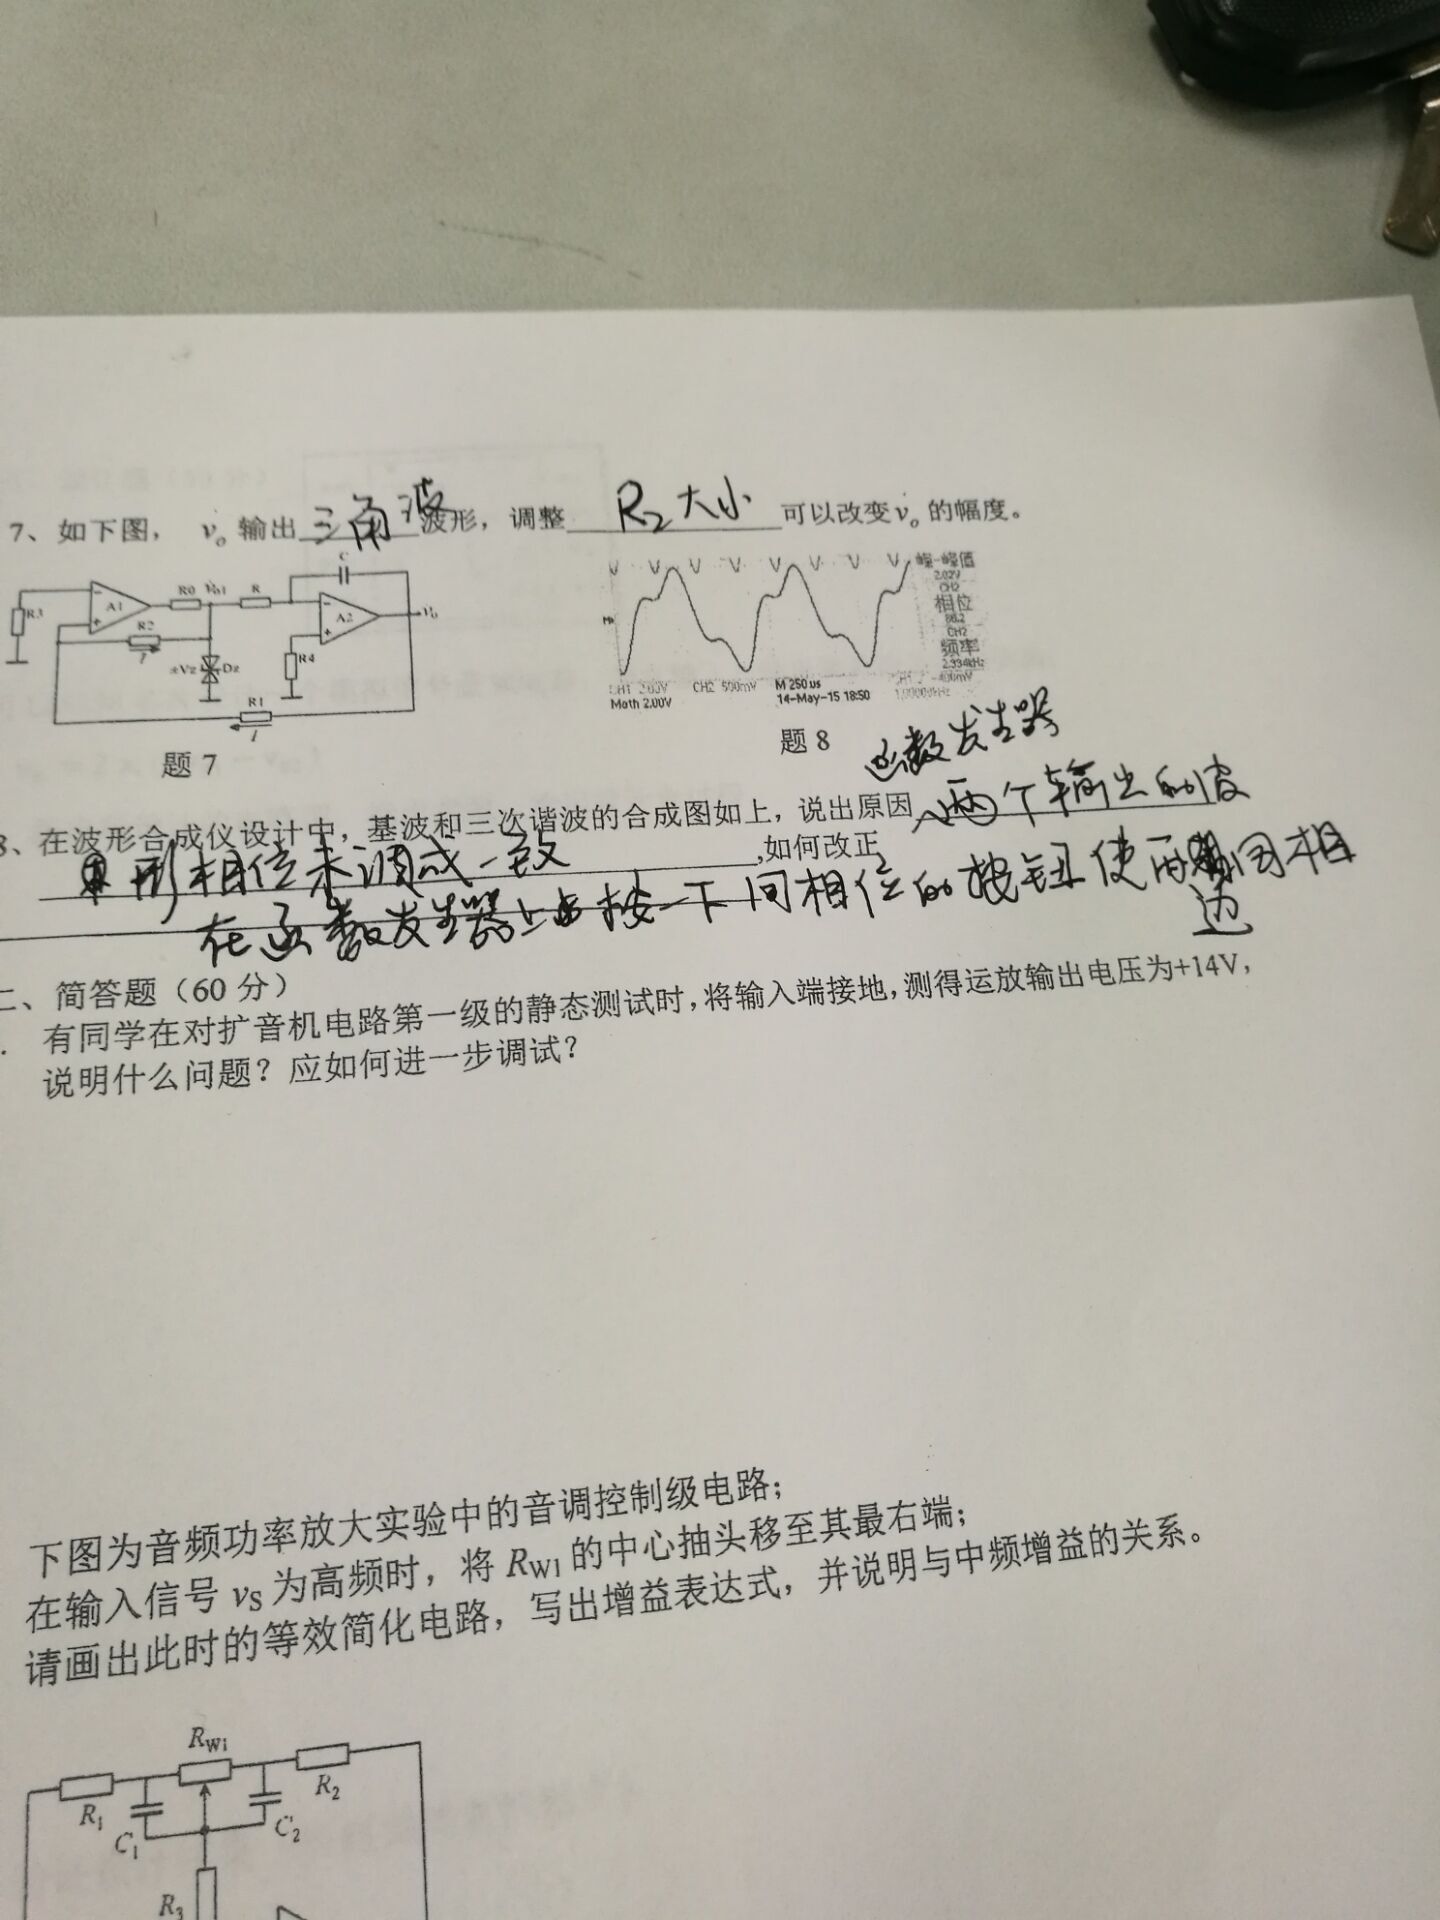 7、如下图， vo 输出三角波波形，调整 R2大小 可以改变vo 的幅度。
C
R3
A1
R0
Vo1
R
A2
Vo
R2
I
±Vz
Dz
R4
R1
I
题 7
峰-峰值
2.02V
CH2
相位
CH2
频率
2.334kHz
CH1 2.00V CH2 500mV M 250us
Math 2.00V 14-May-15 18:50
题 8
函数发生器
8、在波形合成仪设计中，基波和三次谐波的合成图如上，说出原因 两个输出的波
形相位未调成一致 ,如何改正
在函数发生器上按一下同相位的按钮使两边同相
二、简答题（60 分）
有同学在对扩音机电路第一级的静态测试时，将输入端接地，测得运放输出电压为+14V，
说明什么问题？应如何进一步调试？
下图为音频功率放大实验中的音调控制级电路；
在输入信号 vS 为高频时，将 RW1 的中心抽头移至其最右端；
请画出此时的等效简化电路，写出增益表达式，并说明与中频增益的关系。
RW1
R1
R2
C1
C2
R3